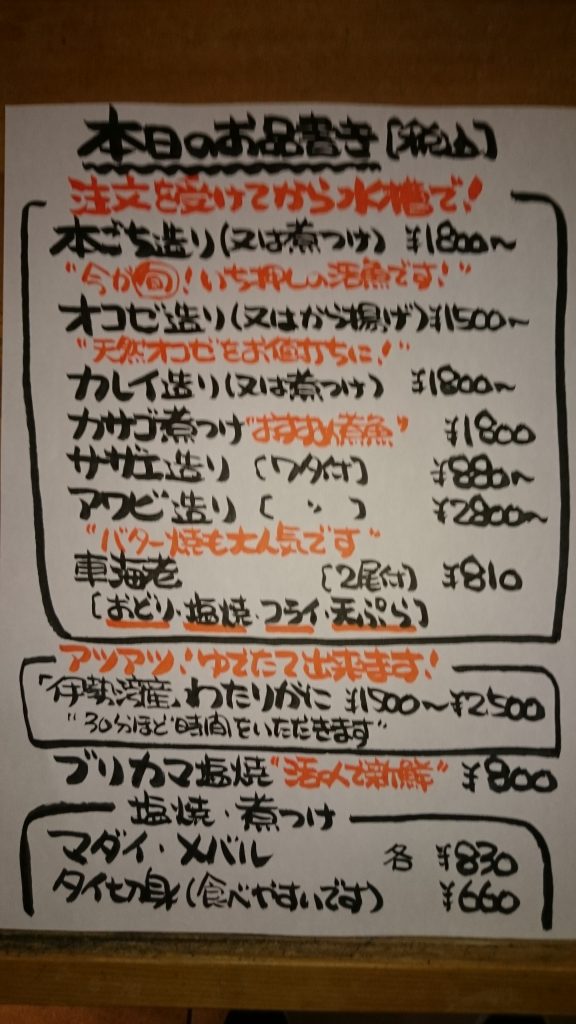 本日のお品書き[税込]
注文を受けてから水槽で!
本ごち造り(又は煮つけ) ¥1800~
"今が旬!いち押しの活魚です!"
オコゼ造り(又はから揚げ)¥1500~
"天然オコゼをお値打ちに!"
カレイ造り(又は煮つけ) ¥1800~
カサゴ煮つけ"おすすめ煮魚" ¥1800
サザエ造り [ワタ付] ¥880~
アワビ造り [ 〃 ] ¥2800~
"バター焼も大人気です"
車海老 [2尾付] ¥810
[おどり・塩焼・フライ・天ぷら]
アツアツ!ゆでたて出来ます!
「伊勢湾産」わたりがに ¥1500~¥2500
"30分ほど時間をいただきます"
ブリカマ塩焼"活〆で新鮮" ¥800
塩焼・煮つけ
マダイ・メバル 各 ¥830
タイ切身(食べやすいです) ¥660